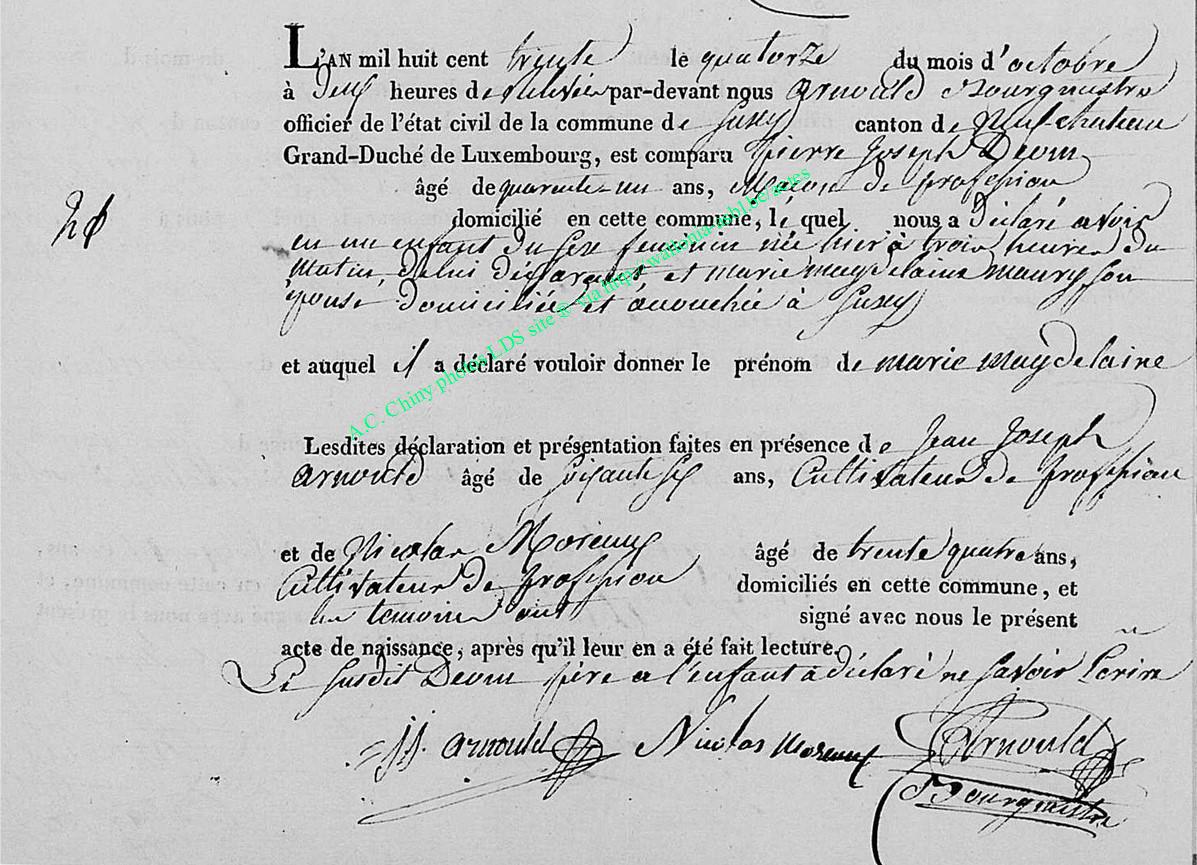 L'AN mil huit cent trente le quatorze du mois d'octobre
à deux heures de relevée par-devant nous arnould Bourgmestre
officier de l'état civil de la commune de Suxy canton de Neufchateau
Grand-Duché de Luxembourg, est comparu pierre Joseph Devm
âgé de quarente-un ans, Maçon de profession
domicilié en cette commune, le quel nous a déclaré avoir
eu un enfant du sexe feminin née hier à trois heures du
Matin de lui déclarant et marie magdelaine maury son
épouse domiciliée et acouchée à Suxy
et auquel il a déclaré vouloir donner le prénom de marie magdelaine
Lesdites déclaration et présentation faites en présence de Jean Joseph
arnould âgé de soixante ans, Cultivateur de profession
et de Nicolas Moreaux âgé de trente quatre ans,
Cultivateur de profession domiciliés en cette commune, et
temoins ont signé avec nous le présent
acte de naissance, après qu'il leur en a été fait lecture.
Le susdit père a l'enfant a déclaré ne savoir Ecrire
JJ. arnould Nicolas Moreaux Arnould
Bourgmestre
A.C. Chiny photos LDS site @ via http://wallonia-mbl.be/actes